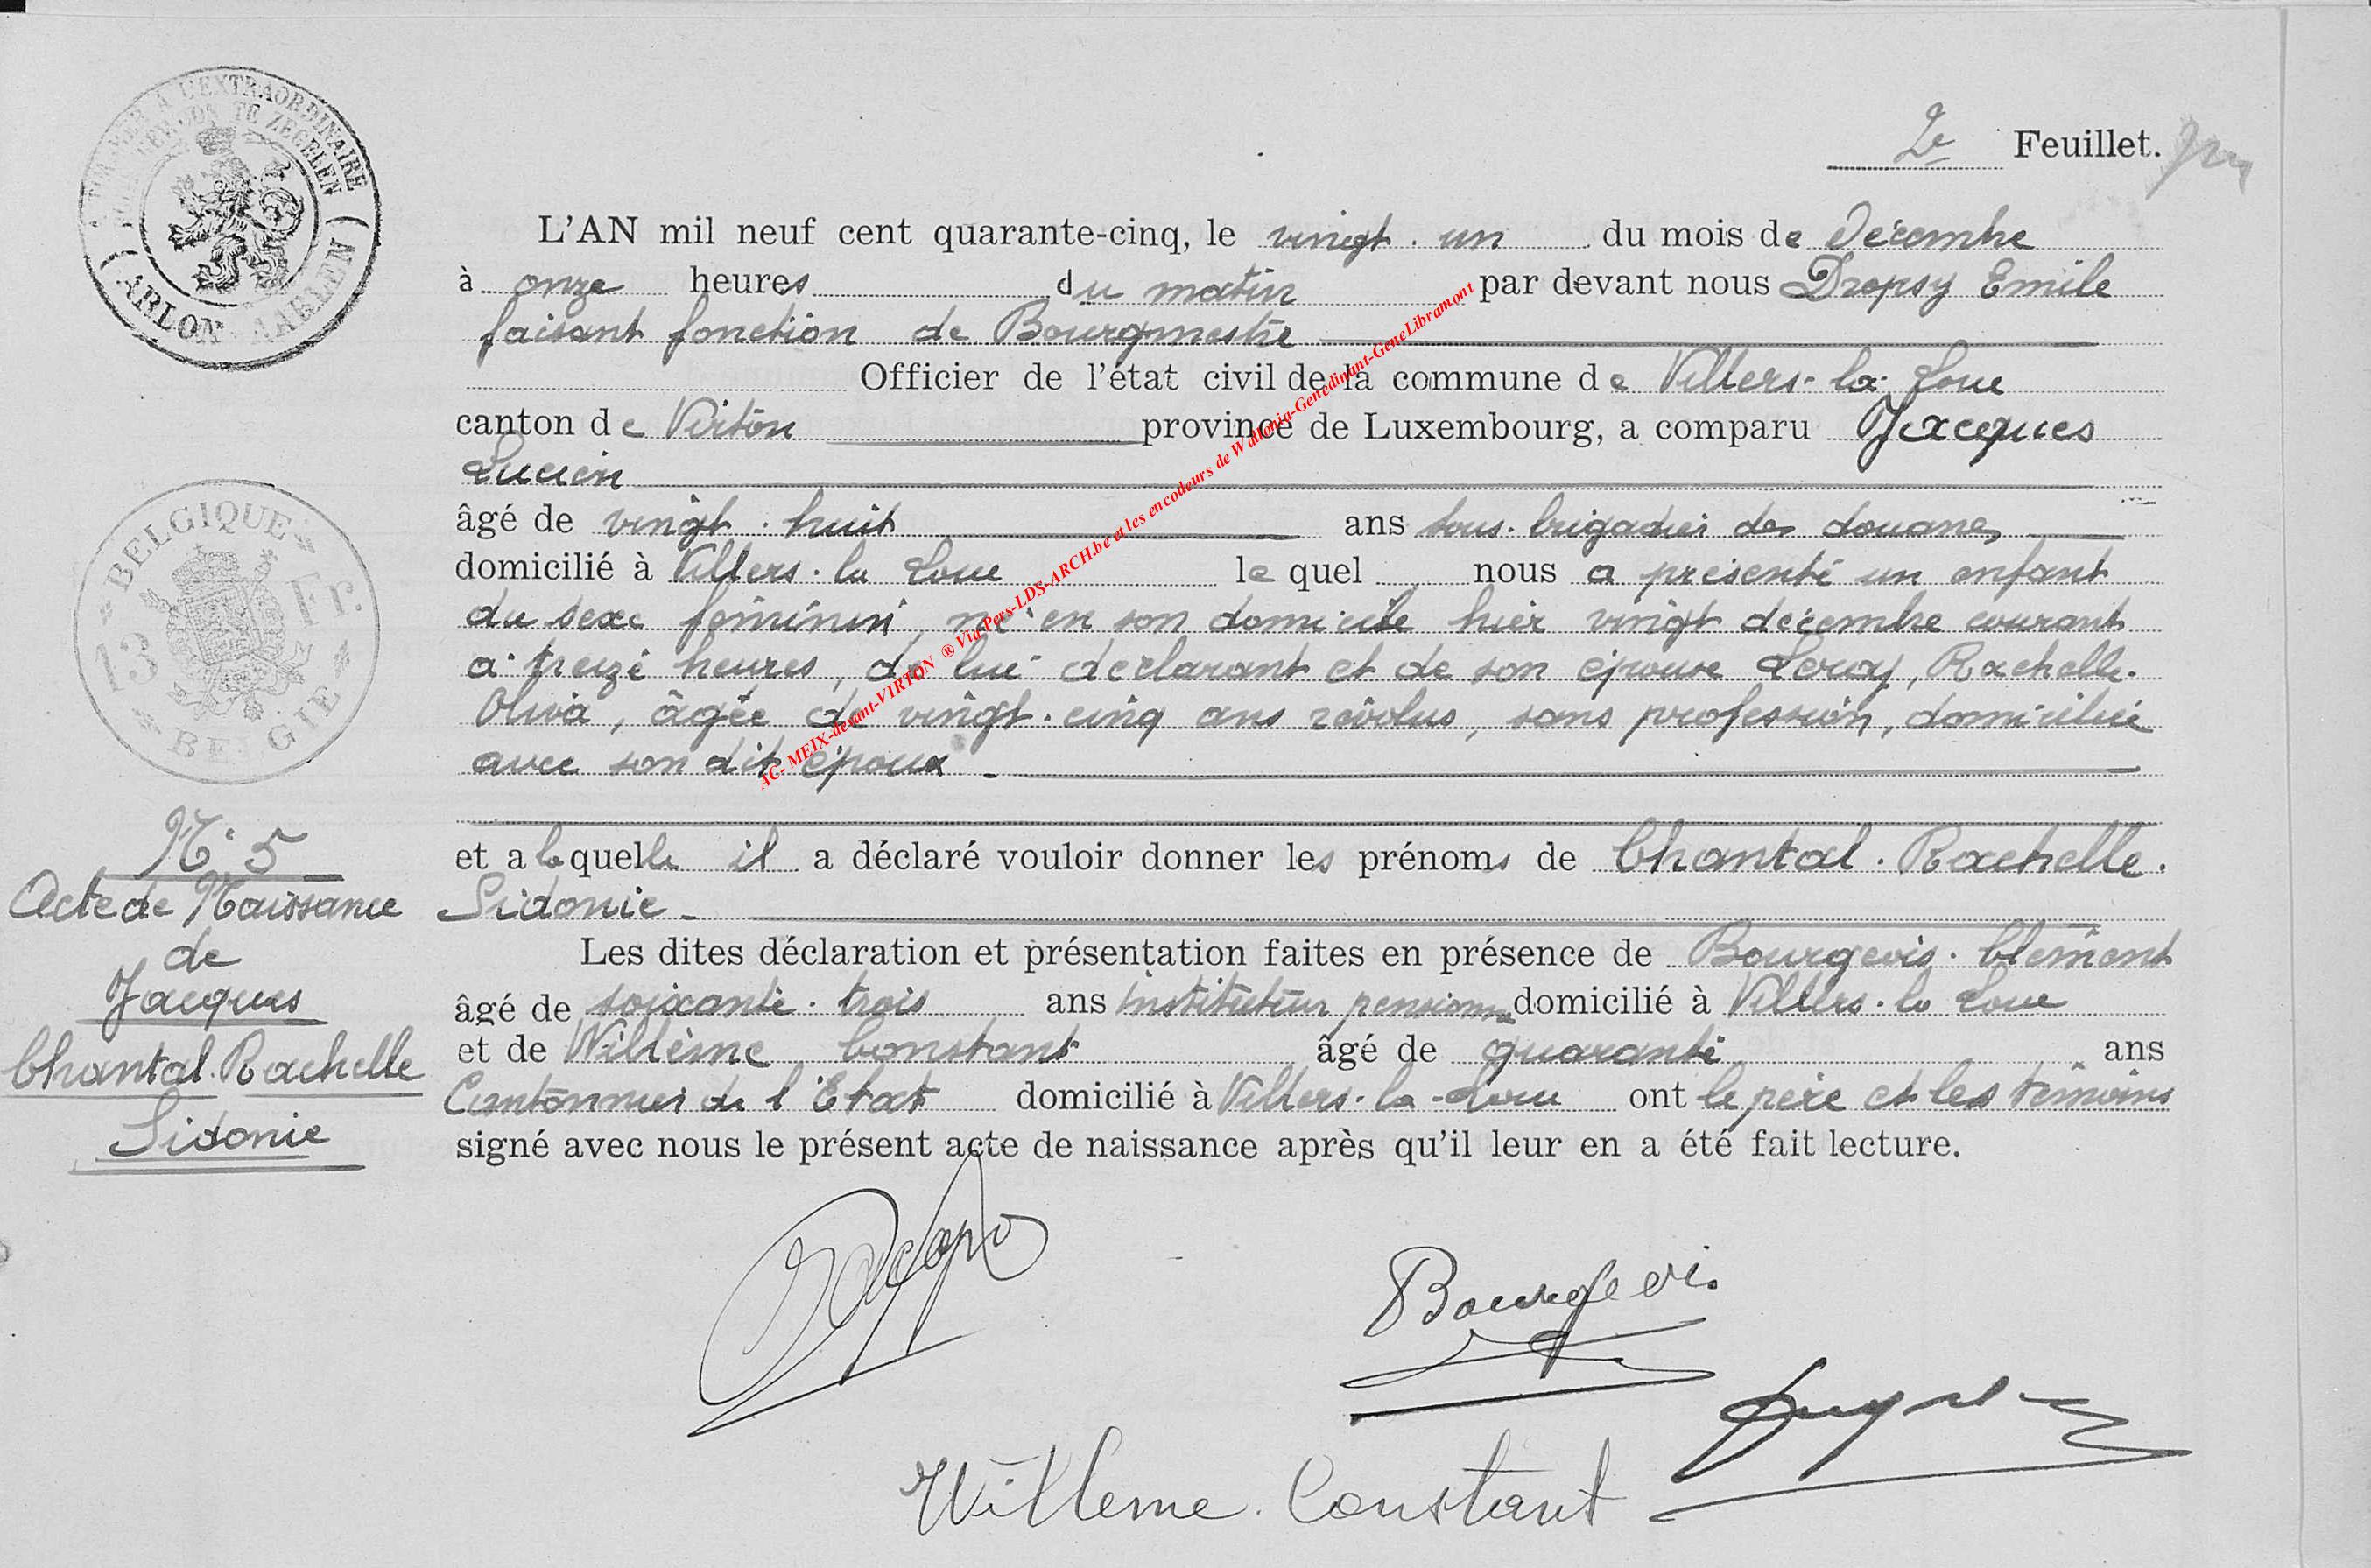 TIMBRER A L'EXTRAORDINAIRE
TE ZEGELEN
(ARLON - AARLEN)
2e Feuillet.
L'AN mil neuf cent quarante-cinq, le vingt-un du mois de Décembre
à onze heures du matin par devant nous Dropsy Emile
faisant fonction de Bourgmestre
Officier de l'état civil de la commune de Villers-la-Loue
canton de Virton province de Luxembourg, a comparu Jacques
Lucien
âgé de vingt-huit ans sous-brigadier des douanes
domicilié à Villers-la Loue le quel nous a présenté un enfant
du sexe féminin, né en son domicile hier vingt décembre courant
à treize heures, de lui déclarant et de son épouse Leroy, Rachelle-
Olivia, âgée de vingt-cinq ans révolus, sans profession, domiciliée
avec son dit époux -
BELGIQUE
13 Fr.
BELGIE
et a laquelle il a déclaré vouloir donner les prénoms de Chantal-Rachelle-
Sidonie -
Les dites déclaration et présentation faites en présence de Bourgeois-Clément
âgé de soixante-trois ans instituteur pensionné domicilié à Villers-la Loue
et de Willème Constant âgé de quarante ans
Cantonnier de l'Etat domicilié à Villers-la-Loue ont le père et les témoins
signé avec nous le présent acte de naissance après qu'il leur en a été fait lecture.
N° 5
Acte de Naissance
de
Jacques
Chantal Rachelle
Sidonie
Bourgeois
Willeme Constant
AC- MEIX-devant-VIRTON ® Via Pers-LDS-ARCH.be et les encodeurs de Wallonia-Genedinant-GeneLibramont